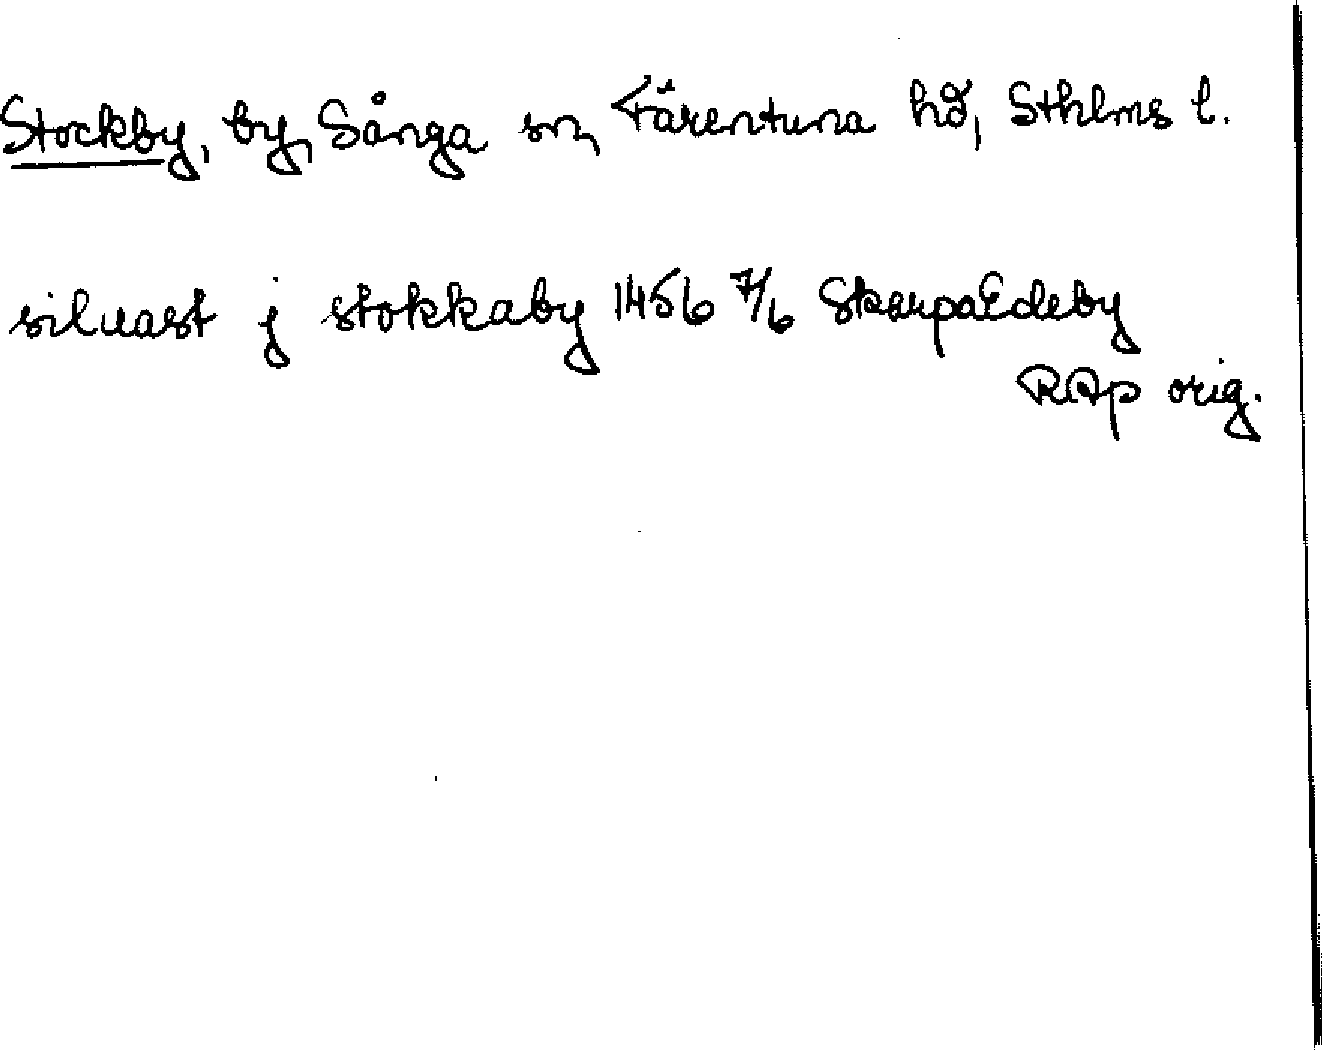 Stockby, by, Sånga sn, Färentuna hd, Sthlms l.
siluast j stokkaby 1456 7/6 SkarpaEdeby
RAp orig.